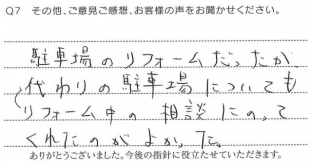 Q7 その他、ご意見ご感想、お客様の声をお聞かせください。
駐車場のリフォームだったが、
代わりの駐車場についても
リフォーム中の相談にのって
くれたのがよかった。
ありがとうございました。今後の指針に役立たせていただきます。